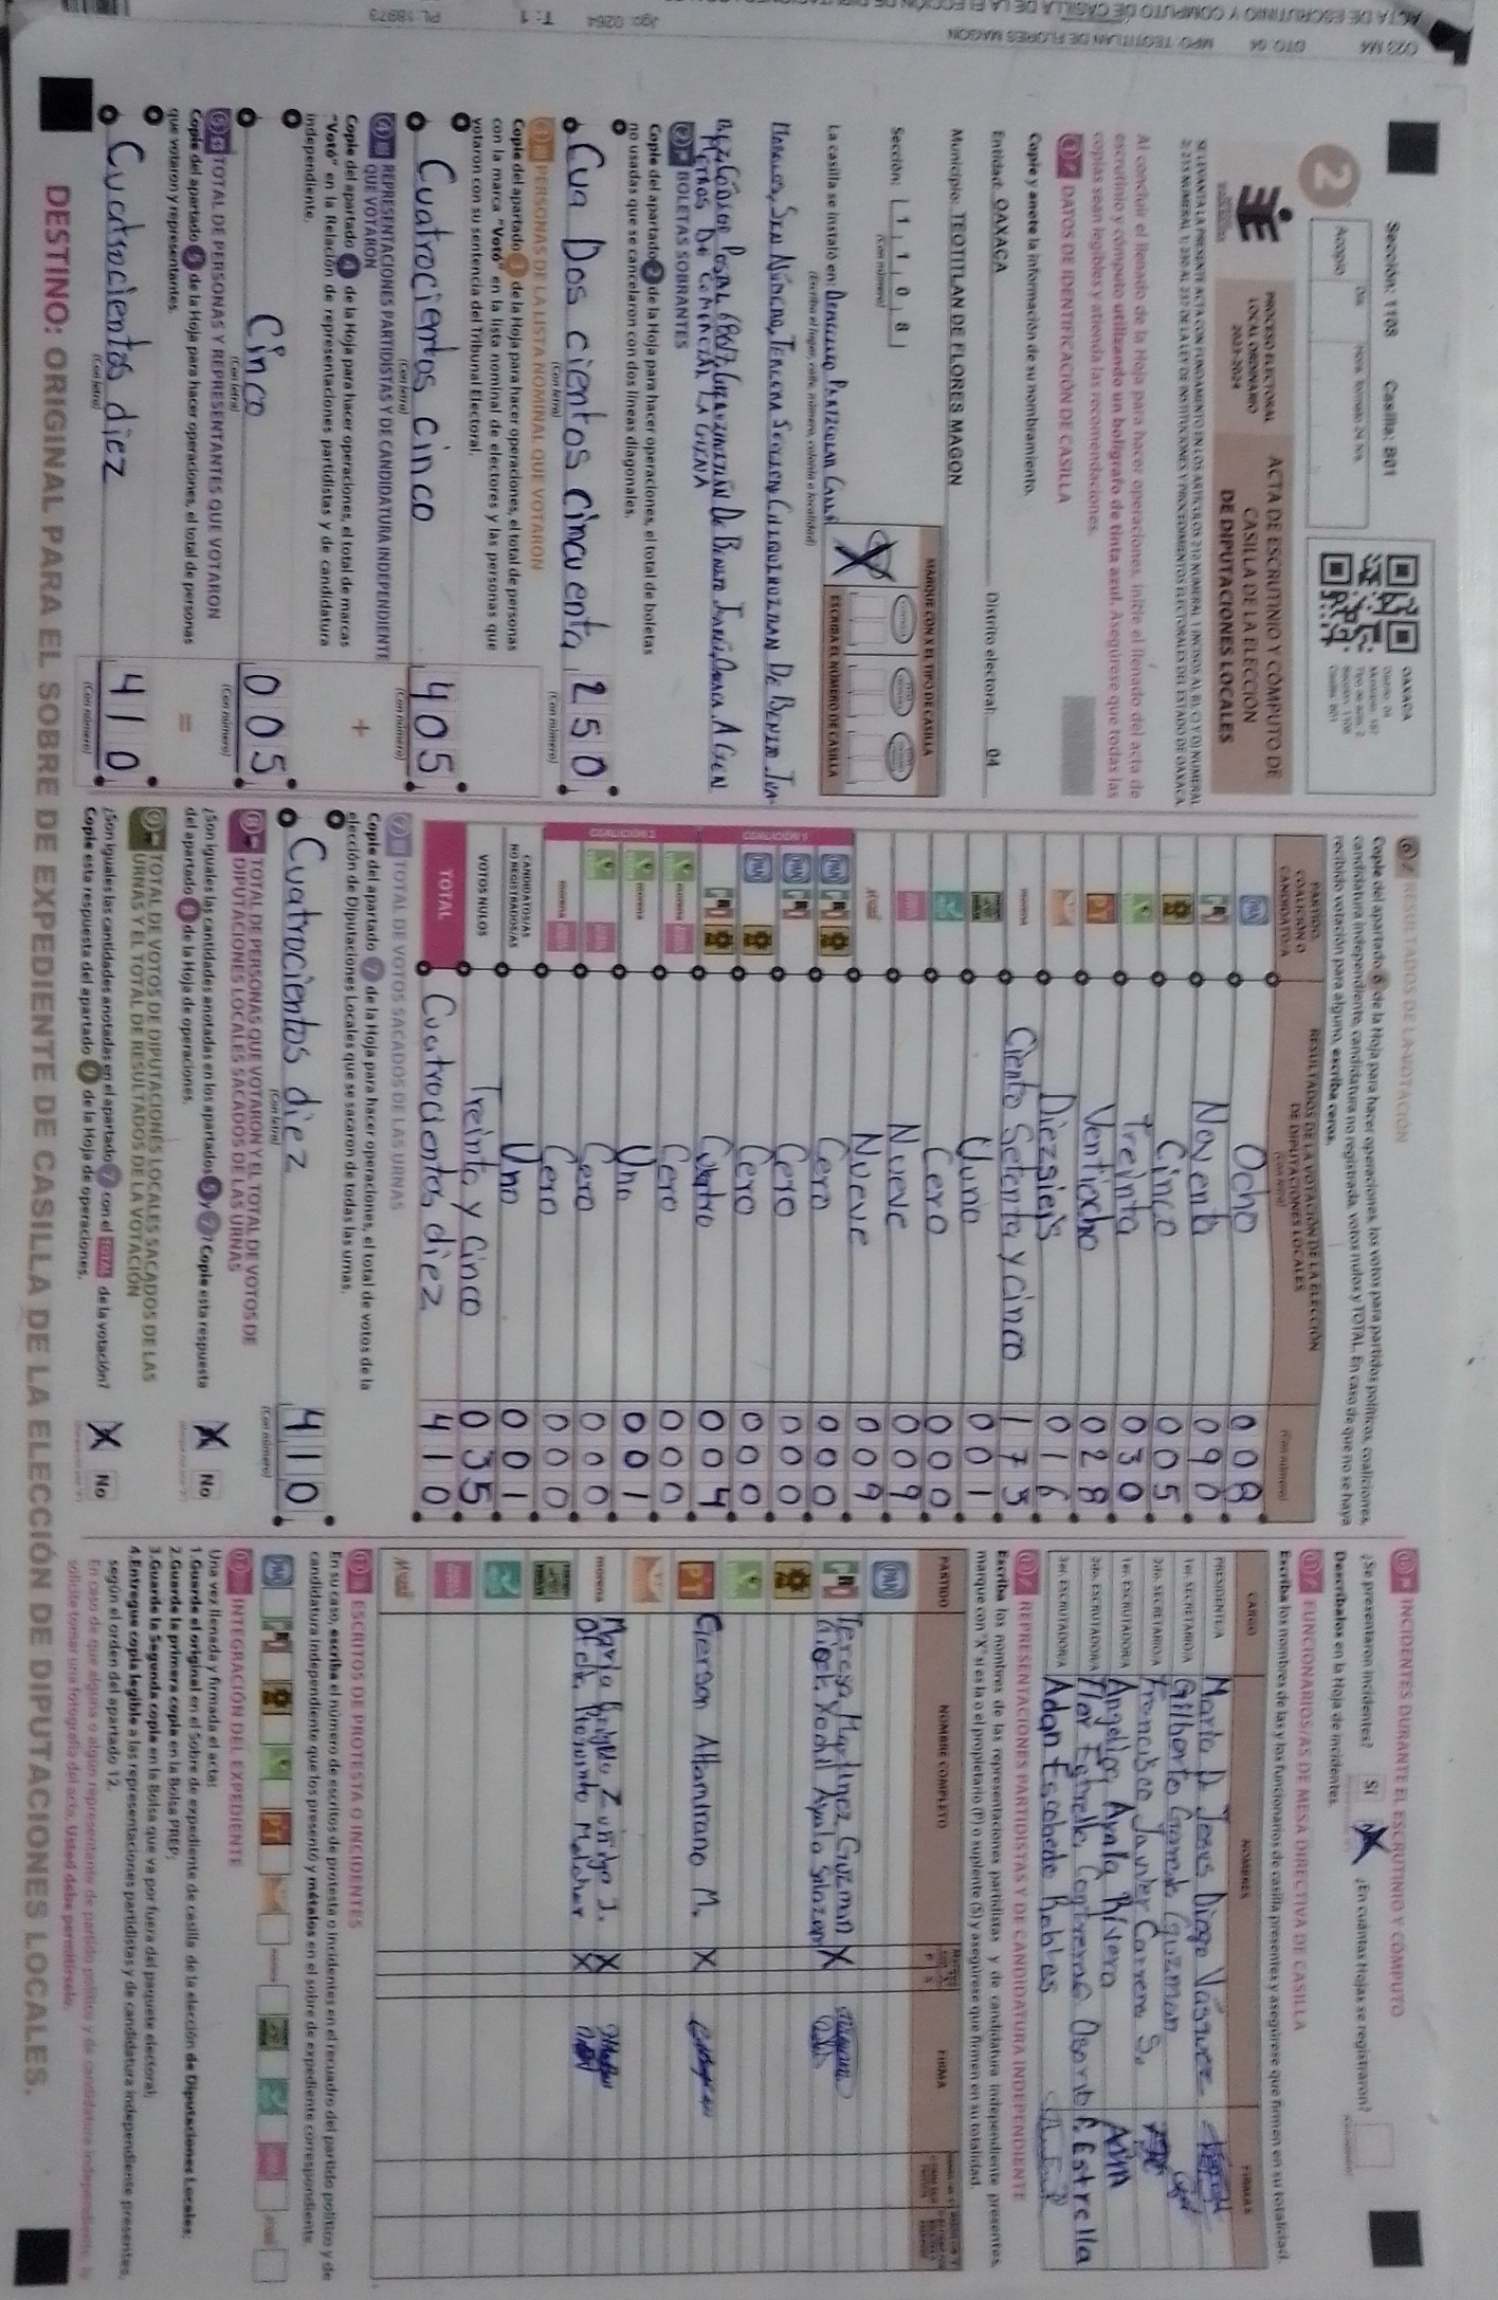 023 MA DTO. 04 MPO. TEOTITLAN DE FLORES MAGON
Jgo: 0264 T: 1
Sección: 1108 Casilla: B01
2
Acopio
Día
Hora, formato 24 hrs.
OAXACA
PROCESO ELECTORAL
LOCAL ORDINARIO
2023-2024
ACTA DE ESCRUTINIO Y CÓMPUTO DE
CASILLA DE LA ELECCIÓN
DE DIPUTACIONES LOCALES
Al concluir el llenado de la Hoja para hacer operaciones, inicie el llenado del acta de
escrutinio y cómputo utilizando un bolígrafo de tinta azul. Asegúrese que todas las
copias sean legibles y atienda las recomendaciones.
1 DATOS DE IDENTIFICACIÓN DE CASILLA
Copie y anote la información de su nombramiento.
Entidad: OAXACA Distrito electoral: 04
Municipio: TEOTITLAN DE FLORES MAGON
Sección: 1 1 0 8
(Con número)
MARQUE CON X EL TIPO DE CASILLA
ESCRIBA EL NÚMERO DE CASILLA
La casilla se instaló en:
(Escriba el lugar, calle, número, colonia o localidad)
2 BOLETAS SOBRANTES
Copie del apartado 2 de la Hoja para hacer operaciones, el total de boletas
no usadas que se cancelaron con dos líneas diagonales.
Cua Dos cientos cincuenta 250
(Con letra) (Con número)
3 PERSONAS DE LA LISTA NOMINAL QUE VOTARON
Copie del apartado 3 de la Hoja para hacer operaciones, el total de personas
con la marca "Votó" en la lista nominal de electores y las personas que
votaron con su sentencia del Tribunal Electoral.
Cuatrocientos cinco 405
(Con letra) (Con número)
4 REPRESENTACIONES PARTIDISTAS Y DE CANDIDATURA INDEPENDIENTE
QUE VOTARON
Copie del apartado 4 de la Hoja para hacer operaciones, el total de marcas
"Votó" en la Relación de representaciones partidistas y de candidatura
independiente.
+
Cinco 005
(Con letra) (Con número)
5 TOTAL DE PERSONAS Y REPRESENTANTES QUE VOTARON
Copie del apartado 5 de la Hoja para hacer operaciones, el total de personas
que votaron y representantes.
=
Cuatrocientos diez 410
(Con letra) (Con número)
6 RESULTADOS DE LA VOTACIÓN
Copie del apartado 6 de la Hoja para hacer operaciones, los votos para partidos políticos, coaliciones,
candidatura independiente, candidatura no registrada, votos nulos y TOTAL. En caso de que no se haya
recibido votación para alguno, escriba ceros.
PARTIDO, COALICIÓN O CANDIDATO/A
RESULTADOS DE LA VOTACIÓN DE LA ELECCIÓN DE DIPUTACIONES LOCALES
(Con letra) (Con número)
PAN Ocho 008
PRI Noventa 090
Cinco 005
Treinta 030
PT Ventiocho 028
Diezsieis 016
morena Ciento Setenta y cinco 175
Uuno 001
Cero 000
Nueve 009
Nueve 009
COALICIÓN 1
Cero 000
Cero 000
Cero 000
Cuatro 004
COALICIÓN 2
Cero 000
Uno 001
Cero 000
Cero 000
CANDIDATOS/AS NO REGISTRADOS/AS Uno 001
VOTOS NULOS Treinta y Cinco 035
TOTAL Cuatrocientos diez 410
7 TOTAL DE VOTOS SACADOS DE LAS URNAS
Copie del apartado 7 de la Hoja para hacer operaciones, el total de votos de la
elección de Diputaciones Locales que se sacaron de todas las urnas.
Cuatrocientos diez 410
(Con letra) (Con número)
8 TOTAL DE PERSONAS QUE VOTARON Y EL TOTAL DE VOTOS DE
DIPUTACIONES LOCALES SACADOS DE LAS URNAS
¿Son iguales las cantidades anotadas en los apartados 5 y 7? Copie esta respuesta
del apartado 8 de la Hoja de operaciones.
No
9 TOTAL DE VOTOS DE DIPUTACIONES LOCALES SACADOS DE LAS
URNAS Y EL TOTAL DE RESULTADOS DE LA VOTACIÓN
¿Son iguales las cantidades anotadas en el apartado 7 con el TOTAL de la votación?
Copie esta respuesta del apartado 9 de la Hoja de operaciones.
No
10 INCIDENTES DURANTE EL ESCRUTINIO Y CÓMPUTO
¿Se presentaron incidentes? Sí ¿En cuántas Hojas se registraron?
Descríbalos en la Hoja de incidentes.
11 FUNCIONARIOS/AS DE MESA DIRECTIVA DE CASILLA
Escriba los nombres de las y los funcionarios de casilla presentes y asegúrese que firmen en su totalidad.
CARGO NOMBRES FIRMAS
PRESIDENTE/A María D Jesus Diego Vásquez
1er. SECRETARIO/A Gilberto Guzman
2do. SECRETARIO/A Francisco Javier Carrera S.
1er. ESCRUTADOR/A Ayala Rivera
2do. ESCRUTADOR/A Flor Estrella Contreras Osorio F. Estrella
3er. ESCRUTADOR/A Adan Escobedo Robles
12 REPRESENTACIONES PARTIDISTAS Y DE CANDIDATURA INDEPENDIENTE
Escriba los nombres de las representaciones partidistas y de candidatura independiente presentes,
marque con "X" si es la o el propietario (P) o suplente (S) y asegúrese que firmen en su totalidad.
PARTIDO NOMBRE COMPLETO FIRMA
PAN
PRI Teresa Martinez Guzman X
Xochil Ayala
PT Gerson Altamirano M. X
morena Maria Zuñiga J. X
Melchor X
13 ESCRITOS DE PROTESTA O INCIDENTES
En su caso, escriba el número de escritos de protesta o incidentes en el recuadro del partido político y de
candidatura independiente que los presentó y métalos en el sobre de expediente correspondiente.
14 INTEGRACIÓN DEL EXPEDIENTE
Una vez llenada y firmada el acta:
1.Guarde el original en el Sobre de expediente de casilla de la elección de Diputaciones Locales;
2.Guarde la primera copia en la Bolsa PREP;
3.Guarde la Segunda copia en la Bolsa que va por fuera del paquete electoral;
4.Entregue copia legible a las representaciones partidistas y de candidatura independiente presentes,
según el orden del apartado 12.
En caso de que alguna o algún representante de partido político y de candidatura independiente, le
solicite tomar una fotografía del acta, Usted debe permitírselo.
DESTINO: ORIGINAL PARA EL SOBRE DE EXPEDIENTE DE CASILLA DE LA ELECCIÓN DE DIPUTACIONES LOCALES.